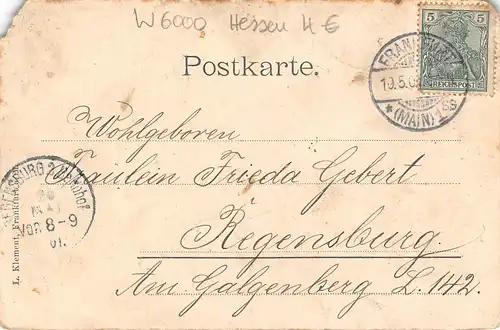 W6000 Hessen 4 €
5 5
REICHSPOST
Postkarte.
FRANKFURT
10.5.0
* (MAIN) 1
Wohlgeboren
Fräulein Frieda Gebert
Regensburg.
Am Galgenberg L. 142.
REGENSBURG 2 Bahnhof
VOR 8-9
01.
L. Klement, Frankfurt